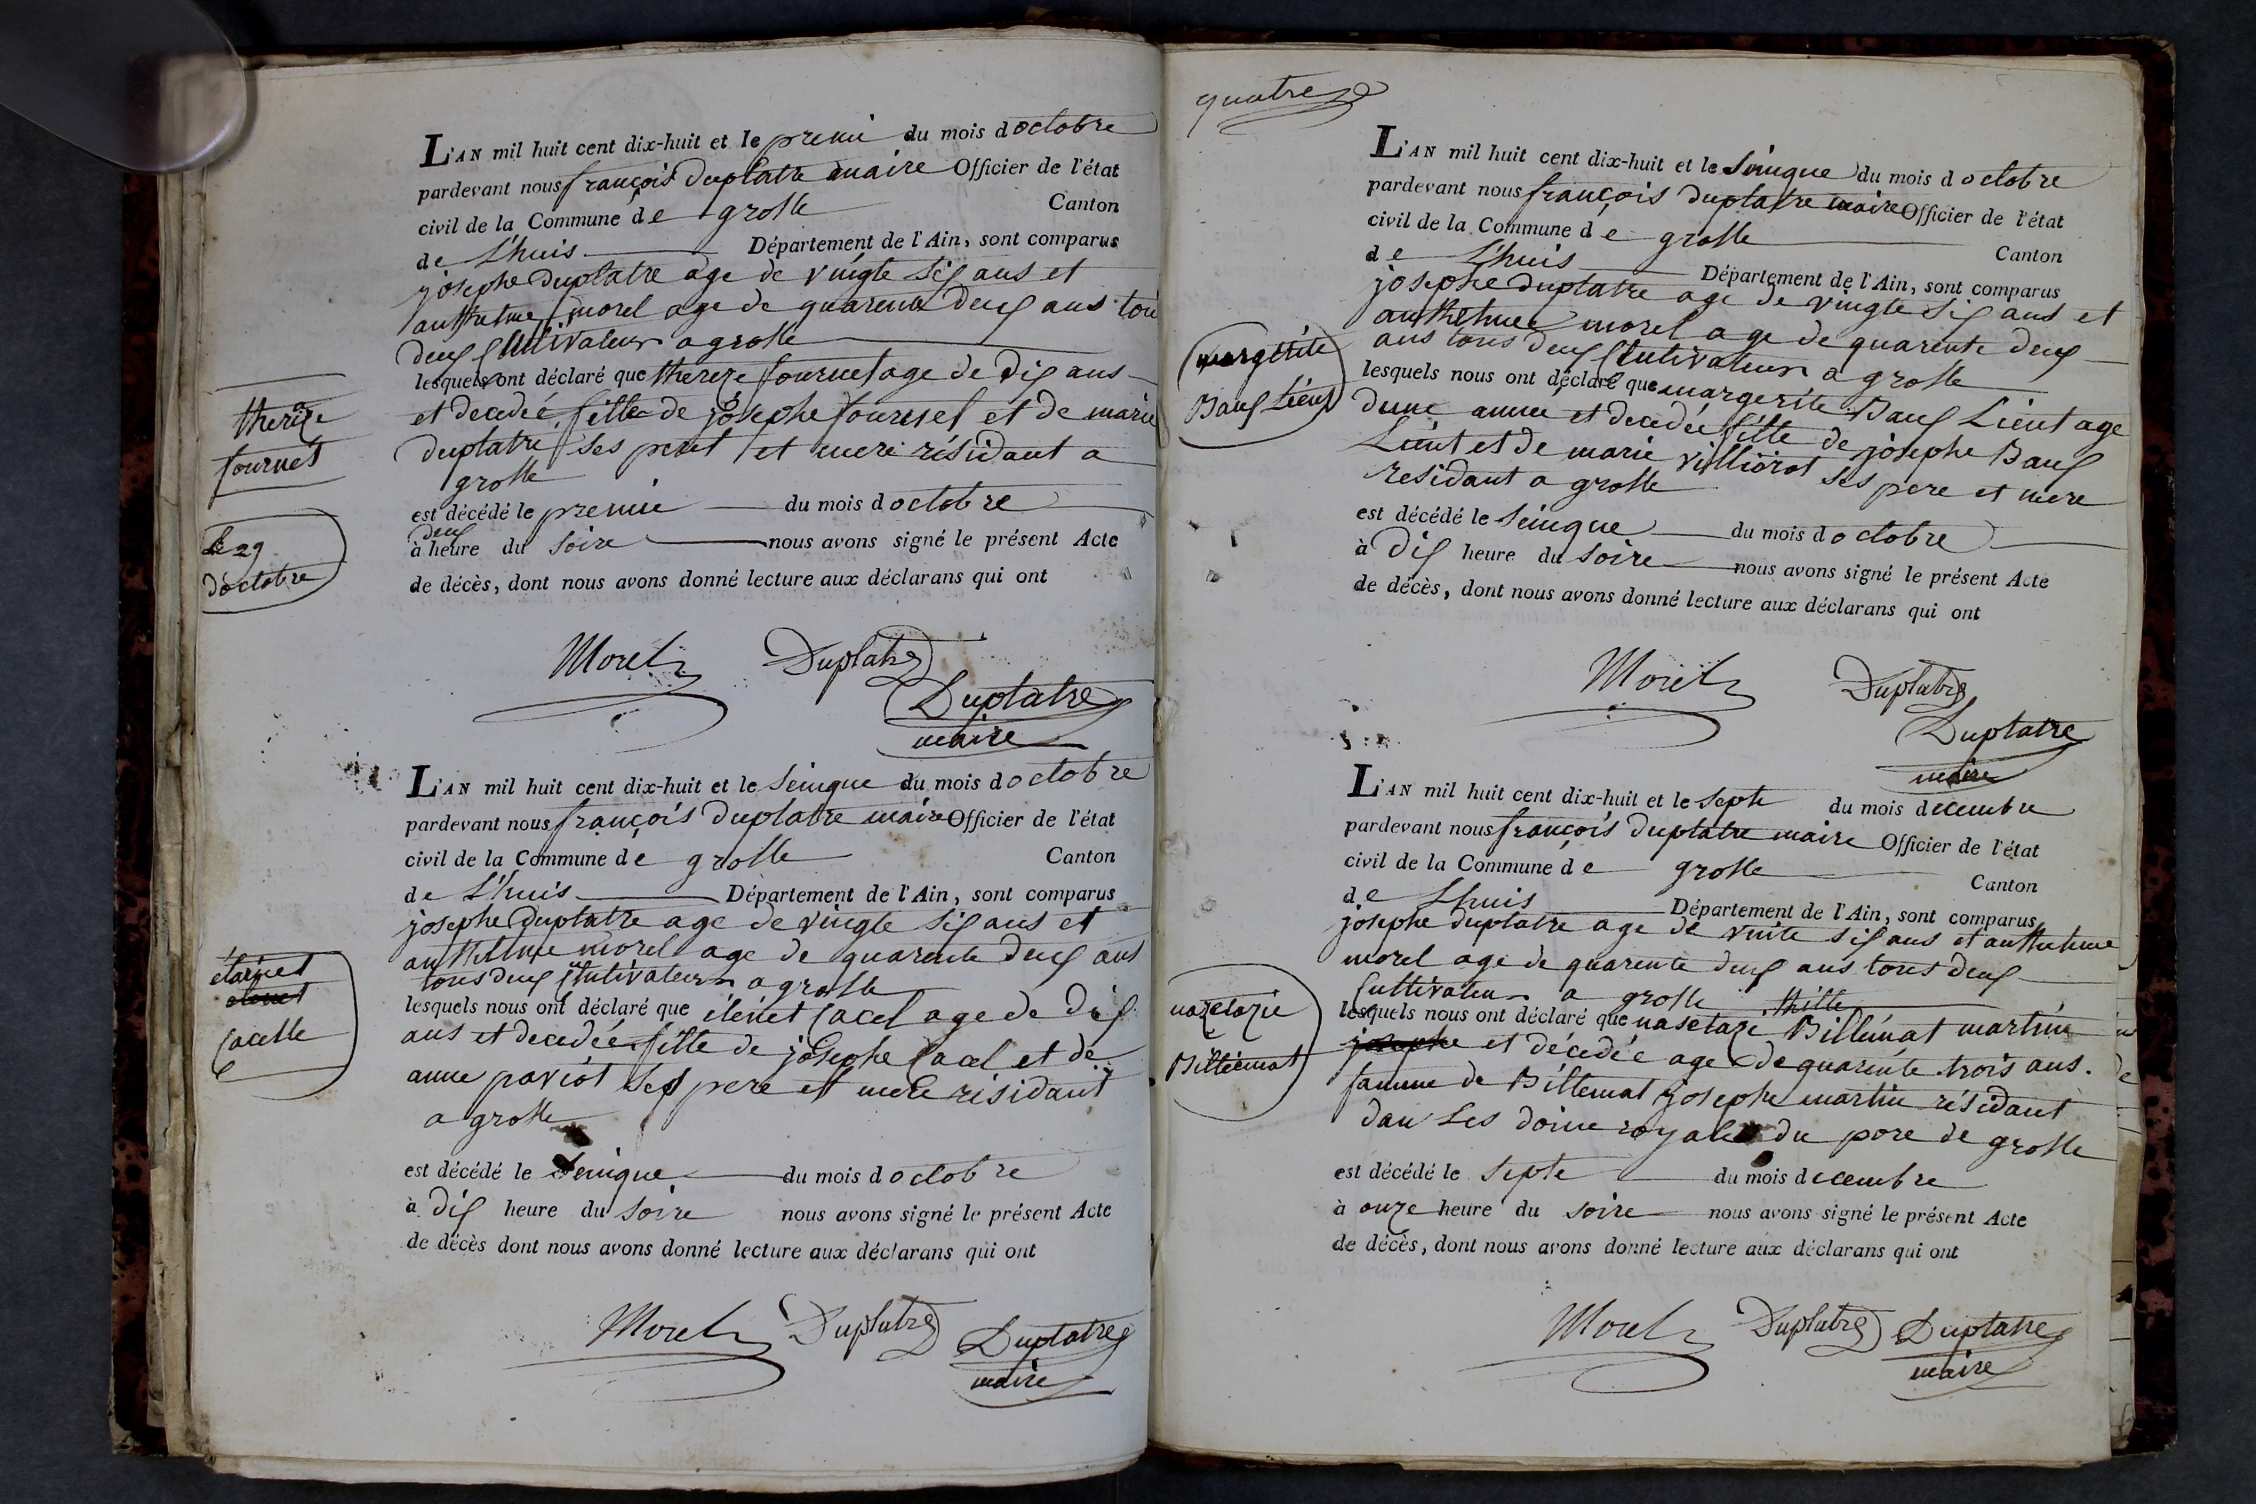 L'AN mil huit cent dix-huit et le premié du mois d octobre
pardevant nous françois duplatre maire Officier de l'état
civil de la Commune de grolle Canton
de L'huis Département de l'Ain, sont comparus
josephe duplatre age de vingte six ans et
anthelme morel age de quarente deux ans tou
deux Cultivateur a grolle
lesquels ont déclaré que thereze fournet age de dix ans
et decedée fille de josephe fournet et de marie
duplatre ses peret et mere résidant a
grolle
est décédé le premié du mois d octobre
deux
à heure du soire nous avons signé le présent Acte
de décès, dont nous avons donné lecture aux déclarans qui ont
thereze
fournet
le 29
d'octobre
Morel Duplatre
Duplatre
maire
L'AN mil huit cent dix-huit et le seinque du mois d octobre
pardevant nous françois duplatre maire Officier de l'état
civil de la Commune de grolle Canton
de L'huis Département de l'Ain, sont comparus
josephe duplatre age de vingte six ans et
anthelme morel age de quarente deux ans
tous deux Cultivateur a grolle
lesquels nous ont déclaré que élénet Cacel age de dix
ans et decedée fille de josephe Cacel et de
anne paviot ses pere et mere résidant
a grolle
est décédé le seinque du mois d octobre
à dix heure du soire nous avons signé le présent Acte
de décès dont nous avons donné lecture aux déclarans qui ont
Cacelle
Morel Duplatre Duplatre
maire
quatre
L'AN mil huit cent dix-huit et le seinque du mois d octobre
pardevant nous françois duplatre maire Officier de l'état
civil de la Commune de grolle
de L'huis Canton
Département de l'Ain, sont comparus
josephe duplatre age de vingte six ans et
anthelme morel age de quarente deux
ans tous deux Cultivateur a grolle
lesquels nous ont déclaré que margerite Baux Lient age
dune annee et decedée fille de josephe Baux
Lient et de marie villiorot ses pere et mere
residant a grolle
est décédé le seinque du mois d octobre
à dix heure du soire nous avons signé le présent Acte
de décès, dont nous avons donné lecture aux déclarans qui ont
margérite
Baux Lient
Morel Duplatre
Duplatre
maire
L'AN mil huit cent dix-huit et le septe du mois decembre
pardevant nous françois duplatre maire Officier de l'état
civil de la Commune de grolle
de Lhuis Canton
Département de l'Ain, sont comparus
josephe duplatre age de vinte six ans et anthelme
morel age de quarente deux ans tous deux
Cultivateur a grolle
lesquels nous ont déclaré que nasetazi Billémat martin
josephe et décedée age de quarente trois ans.
famme de Billemat josephe martin résidant
dan Les doine royale du pore de grolle
est décédé le septe du mois decembre
à onze heure du soire nous avons signé le présent Acte
de décès, dont nous avons donné lecture aux déclarans qui ont
nazetazie
Billiémat
Morel Duplatre Duplatre
maire